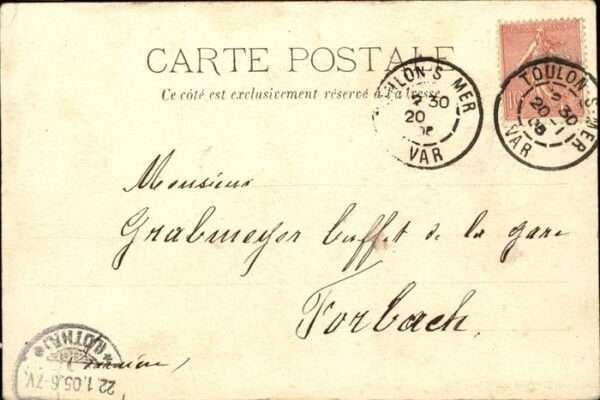 CARTE POSTALE
Ce côté est exclusivement réservé à l'adresse
TOULON S MER
2 30
20
VAR
TOULON-S-MER
2 30
20 - 1
05
VAR
10
Monsieur
Grabmeyer buffet de la gare
Forbach,
22.1.05.6-7V.